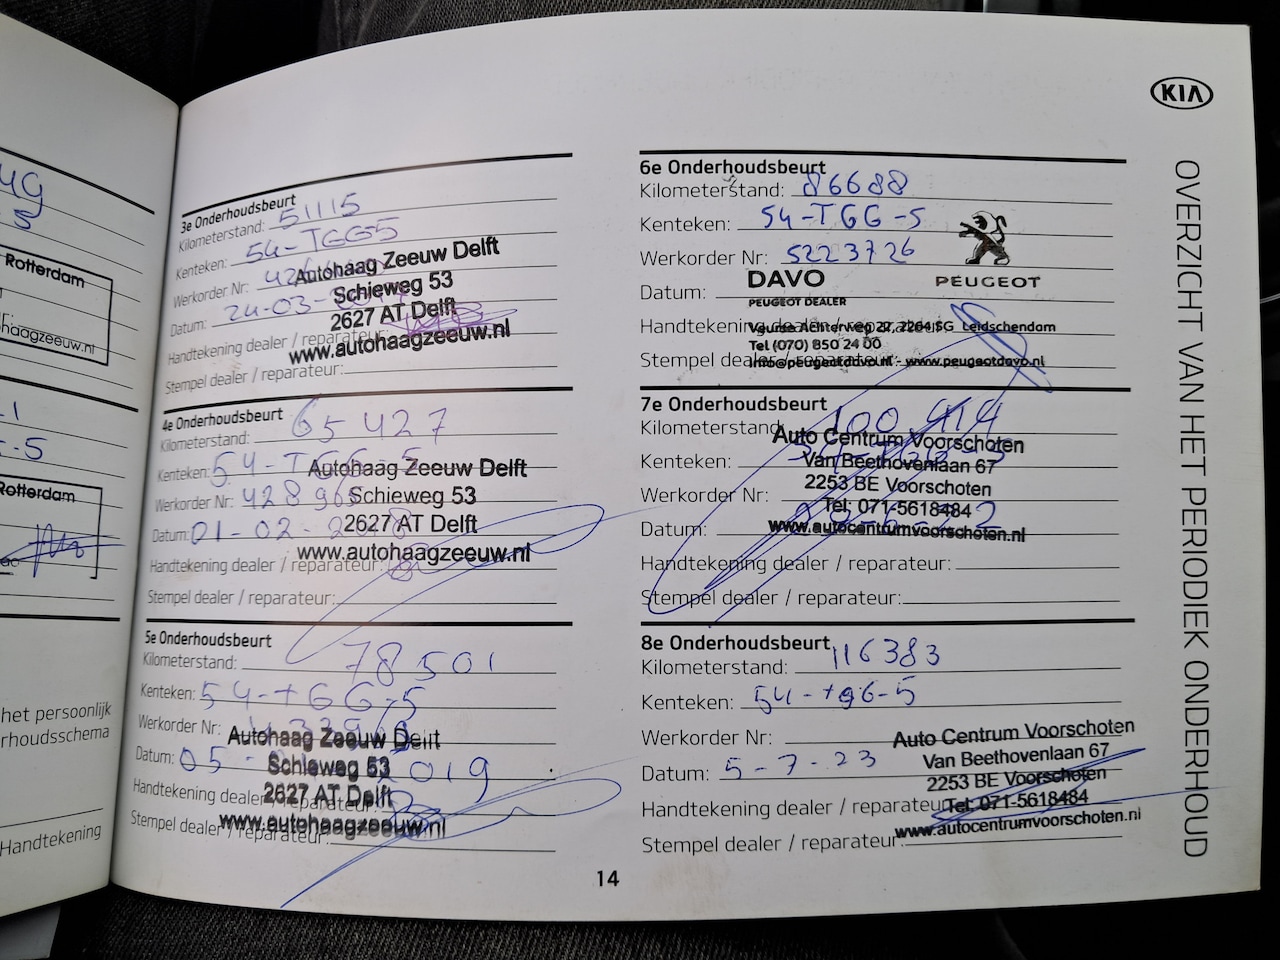 Rotterdam
haagzeeuw.nl
Rotterdam
het persoonlijk
rhoudsschema
Handtekening
3e Onderhoudsbeurt
Kilometerstand: 51115
Kenteken: 54-TGG5
Werkorder Nr:
Datum: 24-03-
Handtekening dealer / reparateur:
Stempel dealer / reparateur:
Autohaag Zeeuw Delft
Schieweg 53
2627 AT Delft
www.autohaagzeeuw.nl
4e Onderhoudsbeurt
Kilometerstand: 65427
Kenteken: 54-TGG-5
Werkorder Nr: 428965
Datum: 01-02-2018
Handtekening dealer / reparateur:
Stempel dealer / reparateur:
Autohaag Zeeuw Delft
Schieweg 53
2627 AT Delft
www.autohaagzeeuw.nl
5e Onderhoudsbeurt
Kilometerstand: 78501
Kenteken: 54-TGG-5
Werkorder Nr:
Datum: 05- 2019
Handtekening dealer / reparateur:
Stempel dealer / reparateur:
Autohaag Zeeuw Delft
Schieweg 53
2627 AT Delft
www.autohaagzeeuw.nl
14
KIA
OVERZICHT VAN HET PERIODIEK ONDERHOUD
6e Onderhoudsbeurt
Kilometerstand: 86688
Kenteken: 54-TGG-5
Werkorder Nr: 5223726
Datum:
Handtekening dealer / reparateur:
Stempel dealer / reparateur:
DAVO
PEUGEOT DEALER
PEUGEOT
Vguase Achterweg 22, 2264 SG Leidschendam
Tel (070) 850 24 00
info@peugeotdavo.nl - www.peugeotdavo.nl
7e Onderhoudsbeurt
Kilometerstand: 100414
Kenteken:
Werkorder Nr:
Datum:
Handtekening dealer / reparateur:
Stempel dealer / reparateur:
Auto Centrum Voorschoten
Van Beethovenlaan 67
2253 BE Voorschoten
Tel: 071-5618484
www.autocentrumvoorschoten.nl
8e Onderhoudsbeurt
Kilometerstand: 116383
Kenteken: 54-tgg-5
Werkorder Nr:
Datum: 5-7-23
Handtekening dealer / reparateur
Stempel dealer / reparateur:
Auto Centrum Voorschoten
Van Beethovenlaan 67
2253 BE Voorschoten
Tel: 071-5618484
www.autocentrumvoorschoten.nl